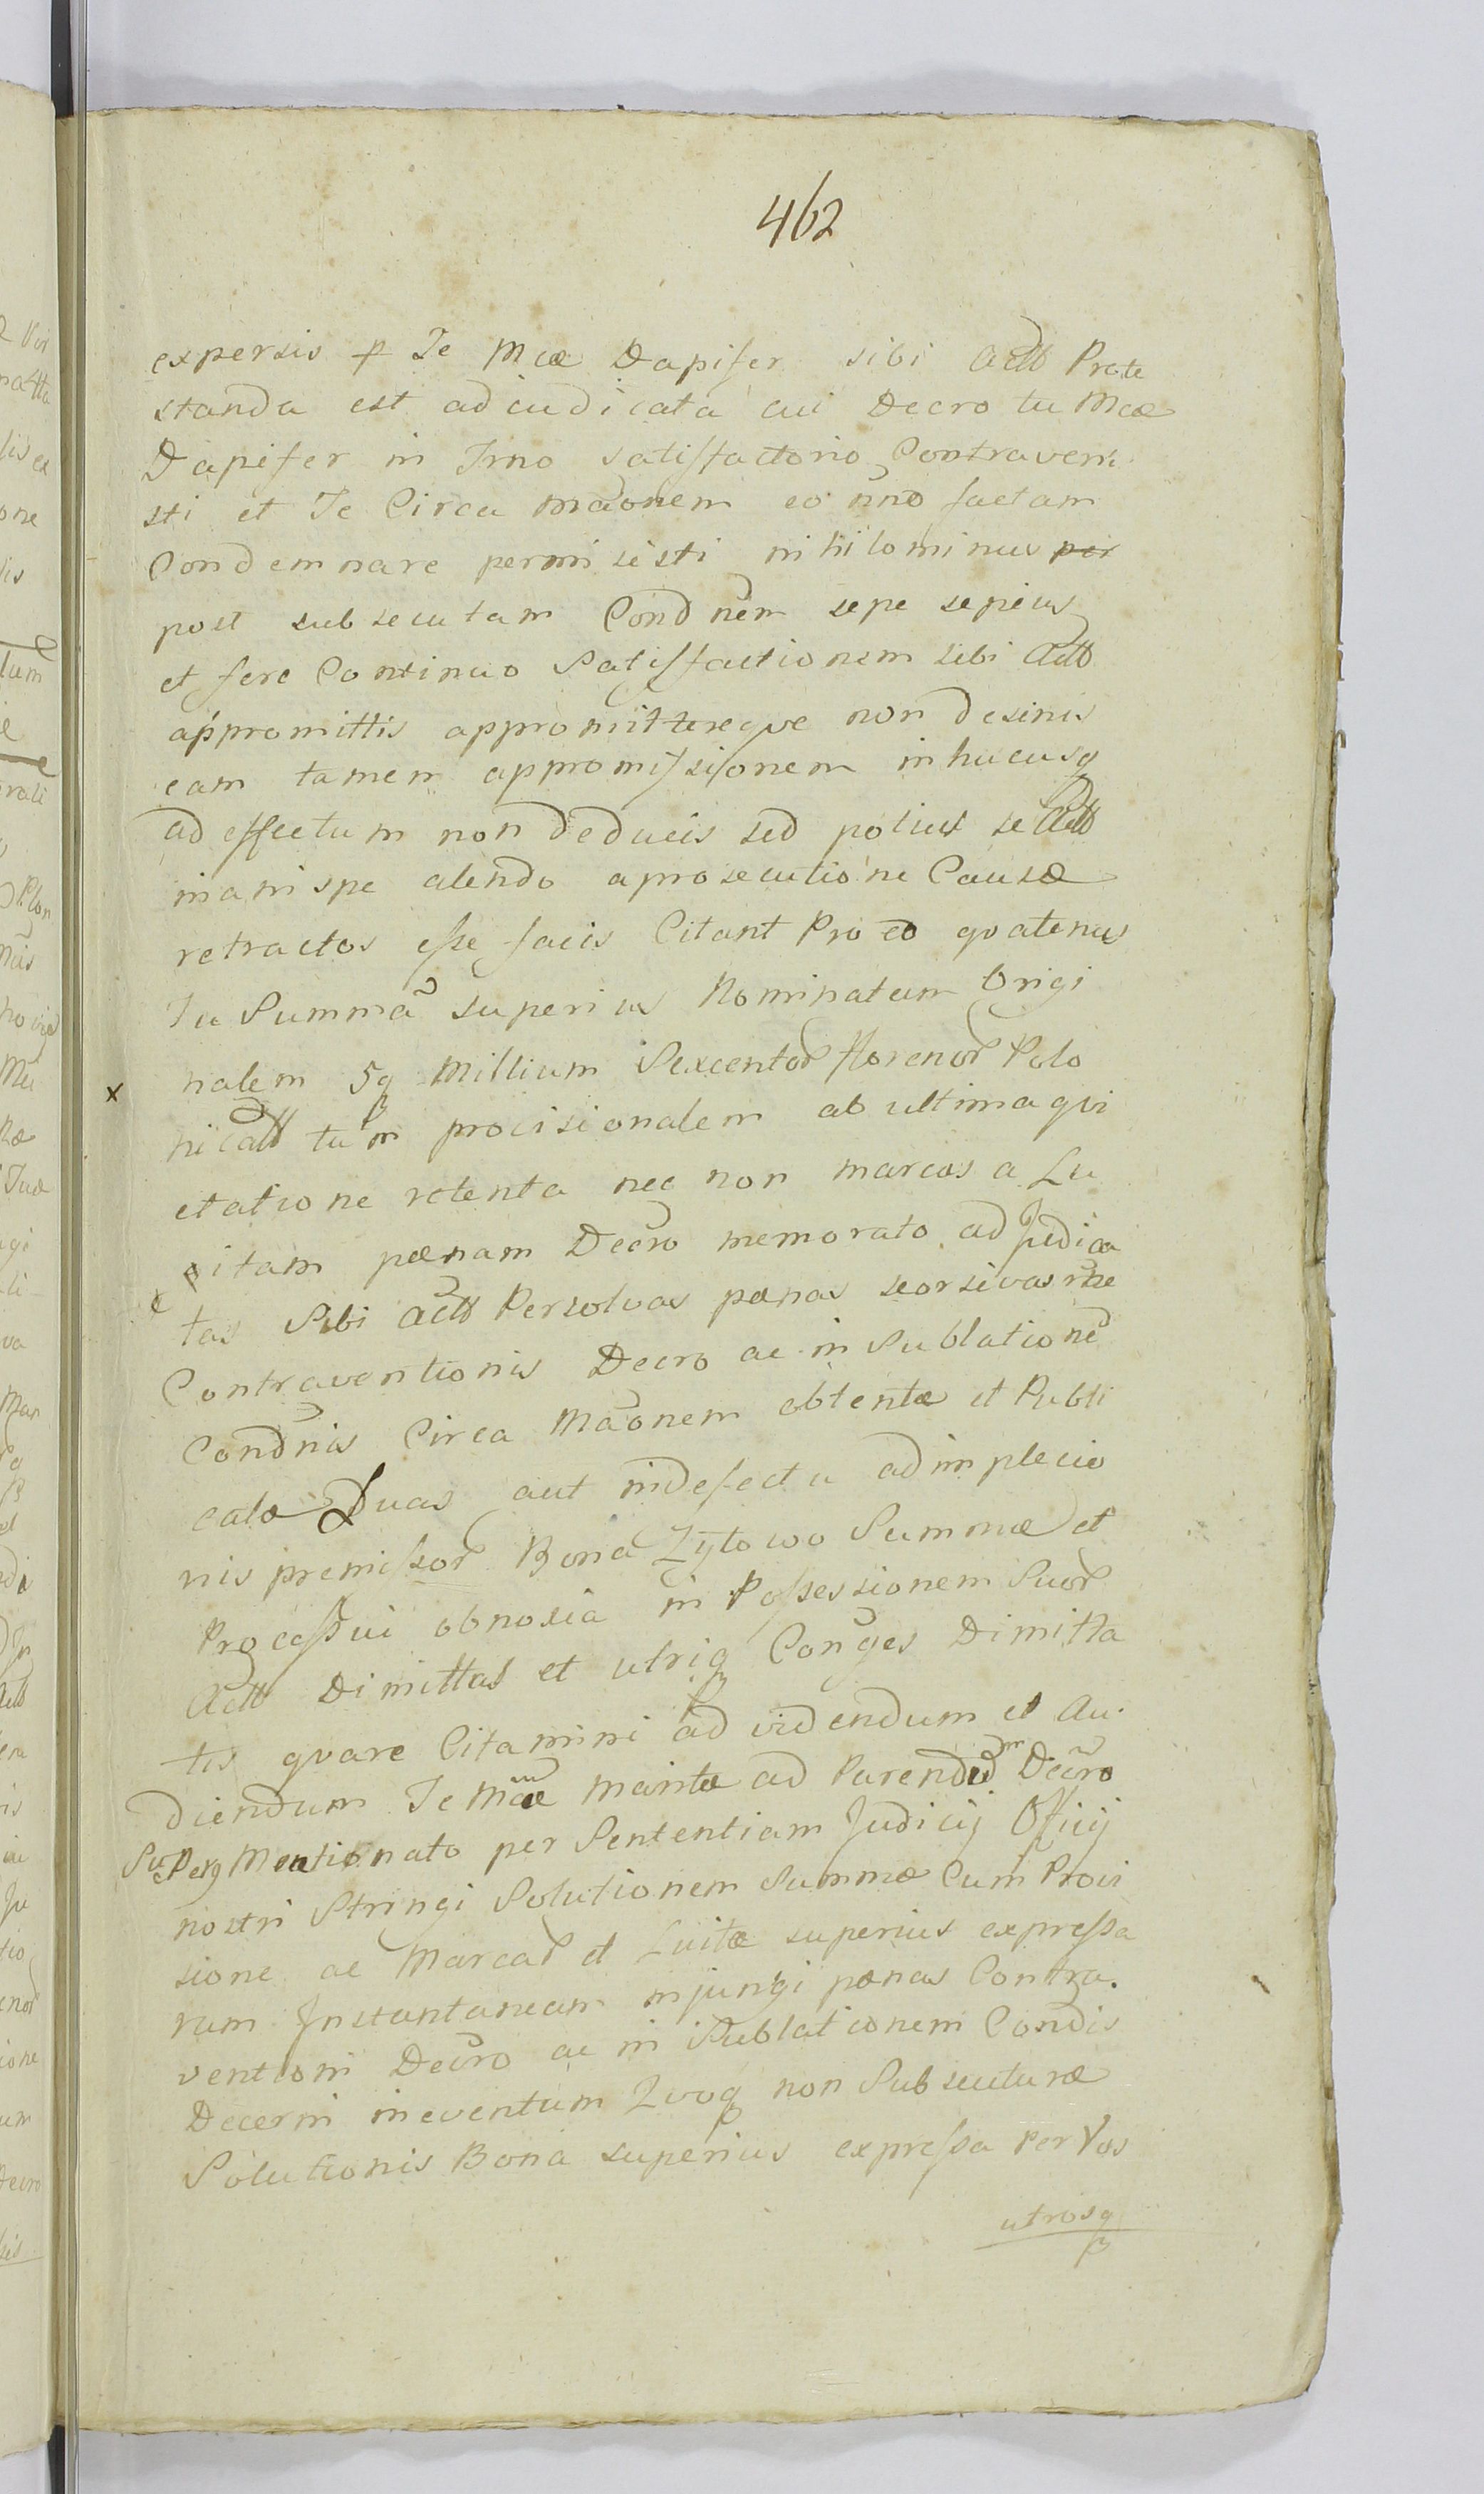 462
expersis p Te Mcæ Dapifer sibi Actt Prote
standa est adiudicata cui Decro tu Mcæ
Dapifer in Trno satisfactorio Contraveni
sti et Te Circa maonem eo nno factam
Condemnare permisisti nihilominus per
post subsecutam Condnem sepe sepius
et fere Continuo Satisfactionem sibi Actt
appromittis appromittereque non desinis
eam tamen appromissionem inhucusq
ad effectum non deducis sed potius se Actt
inani spe alendo a prosecutione Causæ
retractos esse facis Citant Pro eo quatenus
Tu Summa superius Nominatam Origi
x nalem 59 Millium Sexcentor florenor Polo
nical tum provisionalem ab ultima qvi
etatione retenta nec non marcas a Lu
itam pænam Decro memorato adjudica
tas Sibi Actt Persolvas pænas seorsivas rne
Contraventionis Decro ac in Sublatione
Condnis Circa Maonem obtentæ et Publi
catæ Luas aut in defectu adimplecio
nis premissor Bona Zytowo Summæ et
Processui obnoxia in Possessionem Suor
Actt Dimittas et utriq Conges Dimitta
tis qvare Citamini ad videndum et Au
diendum Te Mcæ Maritæ ad Parendum Decro
Superg Mentionato per Sententiam Judicij Officij
nostri Stringi Solutionem Summæ Cum Provi
sione ac Marcar et Luitæ superius expressa
rum Instantaneam injungi pænas Contra
ventioni Decro ac in Sublationem Condis
Decerni in eventum Qvoq non Subsecuturæ
Solutionis Bona superius expressa per Vos
utrosq